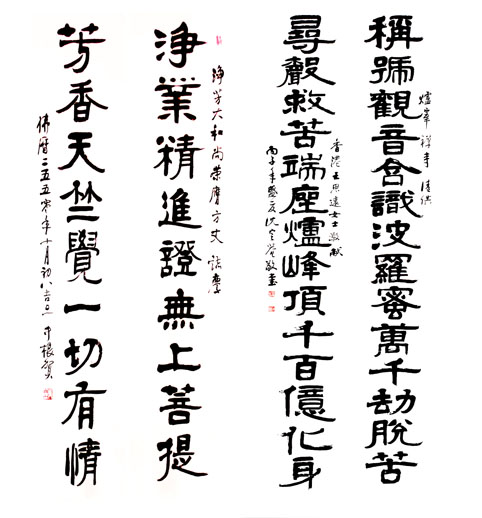 爐峰禪寺 清供
稱號觀音含識波羅蜜萬千劫脫苦
香港王思遠女士敬獻
尋聲救苦端座爐峰頂千百億化身
丙子年盛夏沈定庵敬書
淨芳大和尚榮膺方丈 誌慶
淨業精進證無上菩提
芳香天竺覺一切有情
佛曆二五五零年十月初八吉旦 根賀